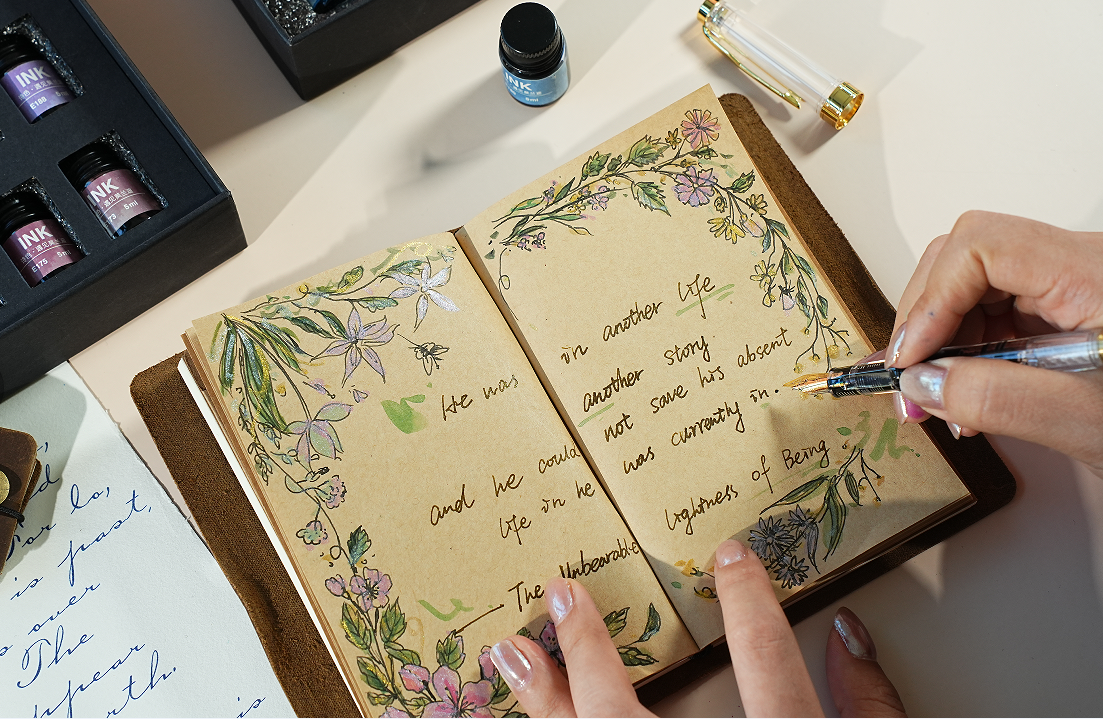 INK
E180
INK
73 5ml
INK
E175 5m
NK
5ml
He was in another life
another story
and he could not save his absent
life in he was currently in.
— The Unbearable lightness of Being
For lo,
is past,
s over
The
ppear
rth.
is